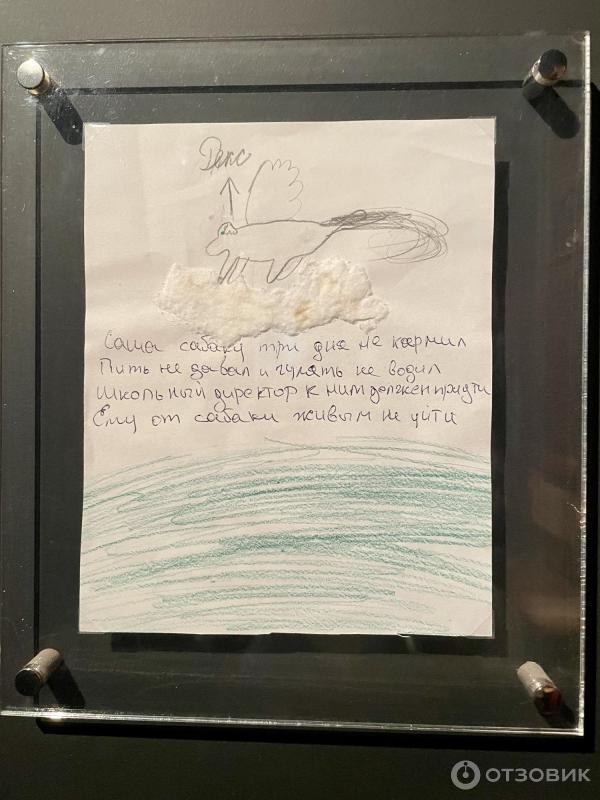 Декс
Саша сабаку три дня не кормил
Пить не давал и гулять не водил
Школьный директор к ним должен придти
Ему от сабаки живым не уйти
ОТЗОВИК